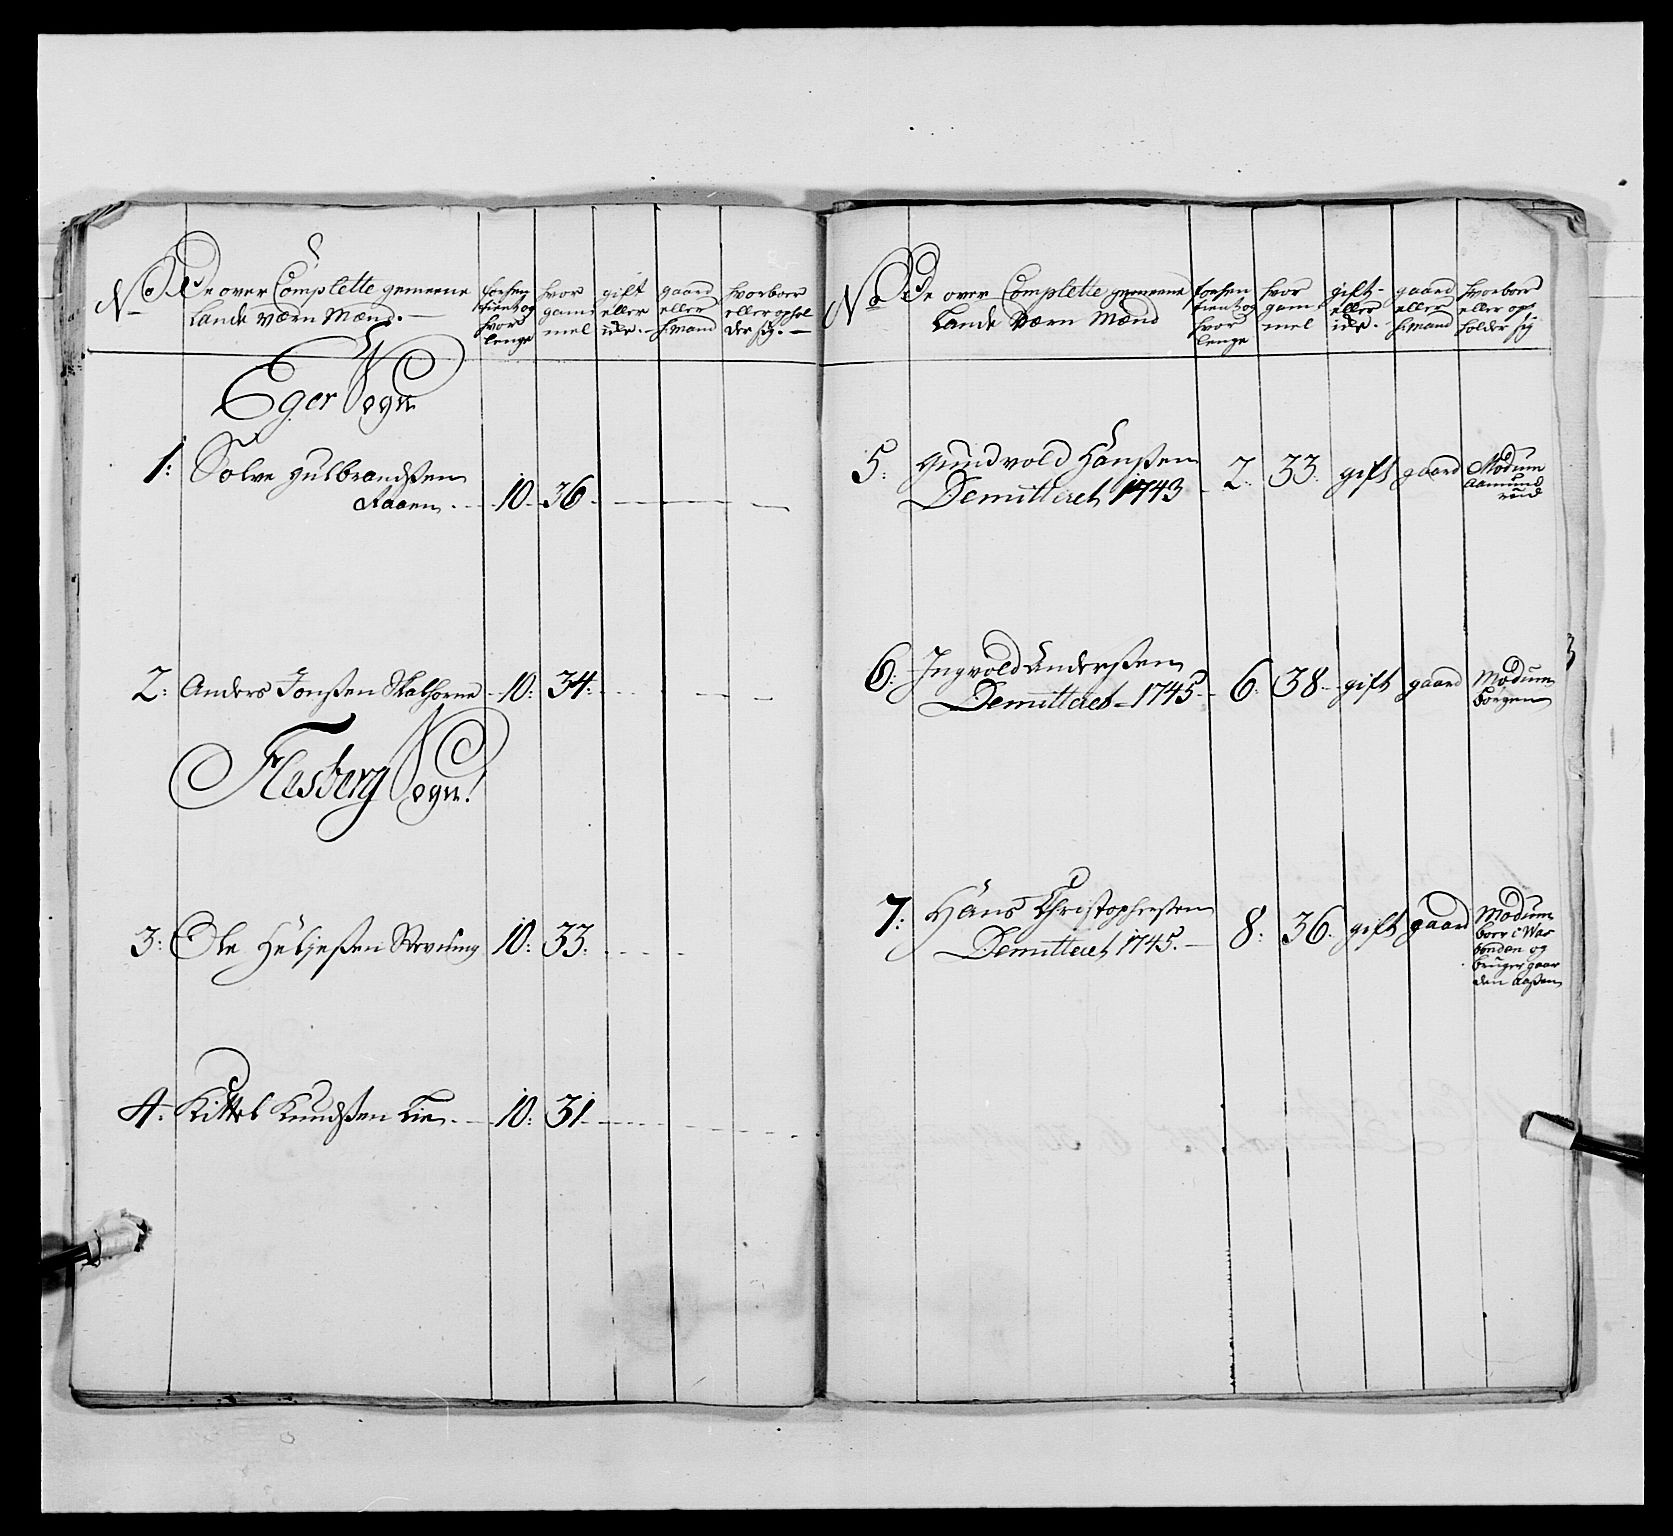 No De over Complette gemeene
Lande Værn Mænd. —
forhen
tient og
hvor
lenge
hvor
gam
mel
gift
eller
eide. —
gaard
eller
hmand
hvor boer
eller ophol
der sig. —
Eger Sogn
1: Solve Gulbrandsßen
Raaen. — 10. 36
2: Anders Jonßen 10: 34:
Flesberg Sogn:
3: Ole Heljeßen 10: 33:
4: Kittel Knudsßen Lie. — 10: 31
No De over Complette gemeene
Lande Værn Mænd
forhen
tient og
hvor
lenge
hvor
gam
mel
gift
eller
eide.
gaard
eller
hmand
hvor boer
eller op
holder sig
5: Gundvold Hanßen
Demitteret 1743 2: 33. gift gaard Modum
Aamund
rud
6: Ingvold Anderßen
Demitteret 1745 6: 38 gift gaard Modum
Borgen
7: Hans Christophersßen
Demitteret 1745. — 8: 36. gift gaard Modum
boer i
og
bruger gaar
den Aaßen